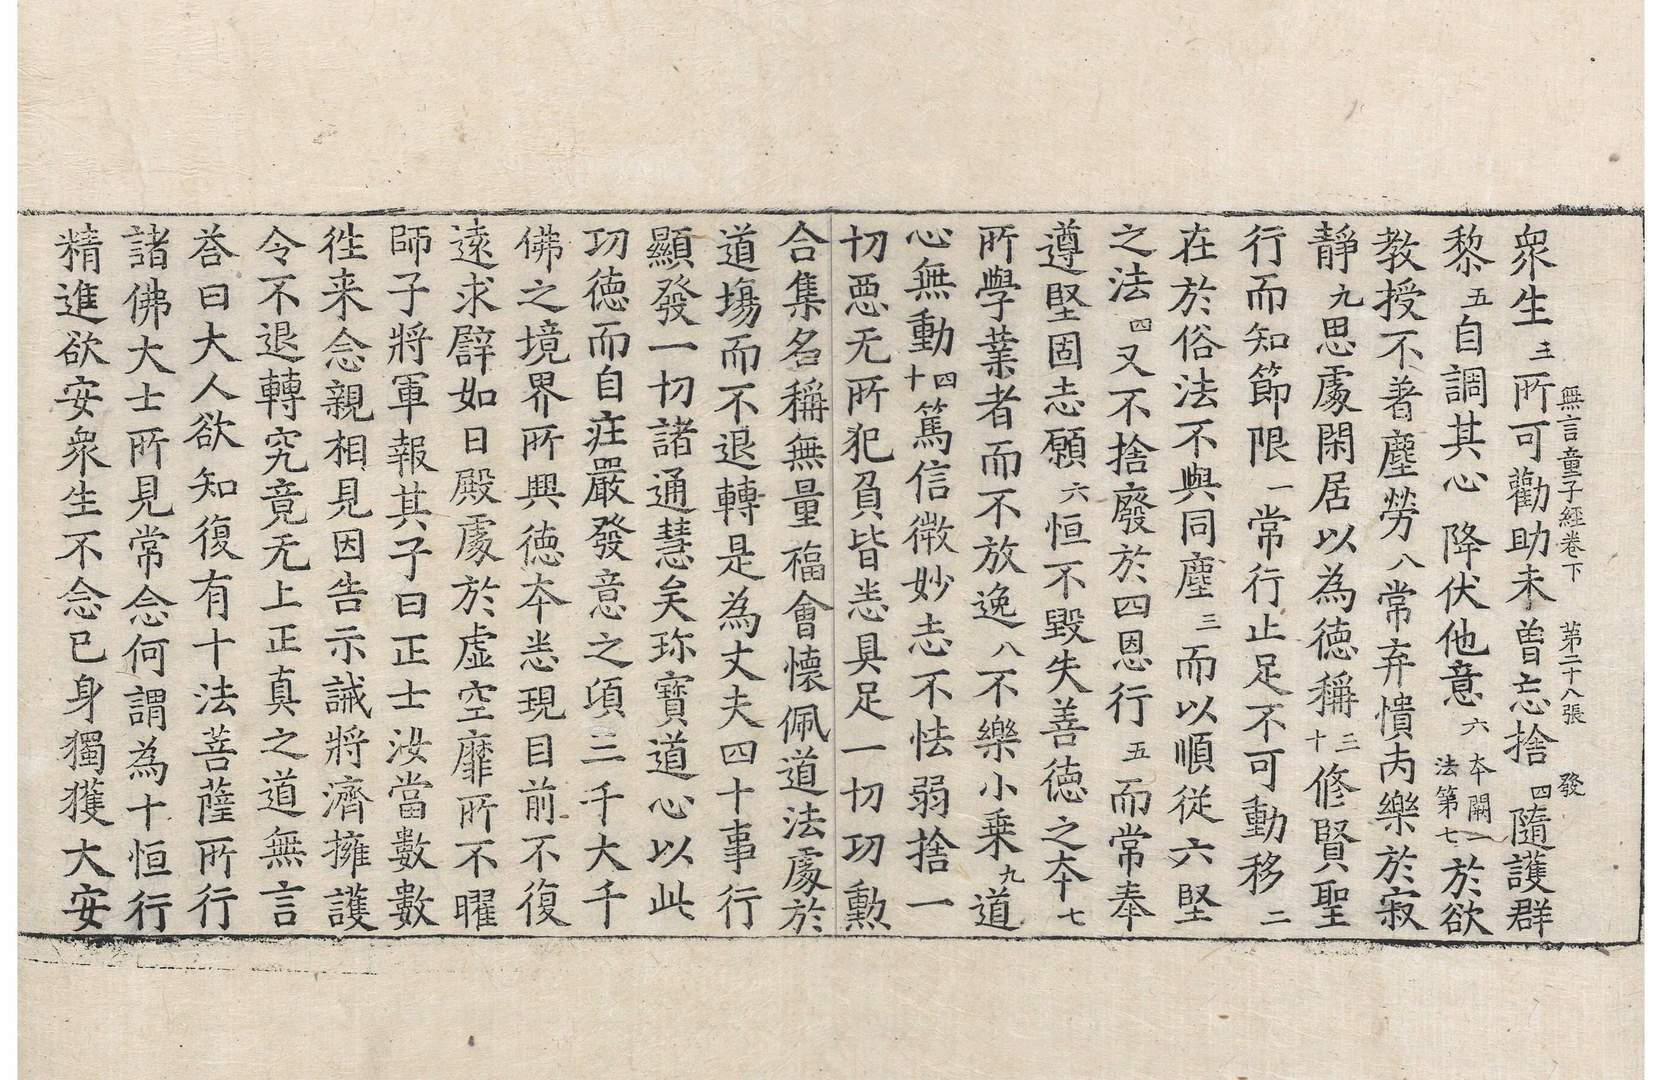 無言童子經卷下 第二十八張 發
衆生三所可勸助未曽忘捨四隨護群
黎五自調其心降伏他意六本闕一法第七於欲
教授不著塵勞八常弃憒丙樂於寂
靜九思處閑居以為德稱三十修賢聖
行而知節限一常行止足不可動移二
在於俗法不與同塵三而以順従六堅
之法四又不捨廢於四恩行五而常奉
遵堅固志願六恒不毀失善德之夲七
所學業者而不放逸八不樂小乗九道
心無動四十篤信微妙志不怯弱捨一
切惡无所犯負皆悉具足一切功勲
合集名稱無量福會懷佩道法處於
道塲而不退轉是為丈夫四十事行
顯發一切諸通慧矣珎寶道心以此
功德而自庄嚴發意之頃三千大千
佛之境界所興德夲悉現目前不復
遠求譬如日殿處於虛空靡所不曜
師子將軍報其子曰正士汝當數數
徃来念親相見因告示誡將濟擁護
令不退轉究竟无上正真之道無言
荅曰大人欲知復有十法菩薩所行
諸佛大士所見常念何謂為十恒行
精進欲安衆生不念已身獨獲大安